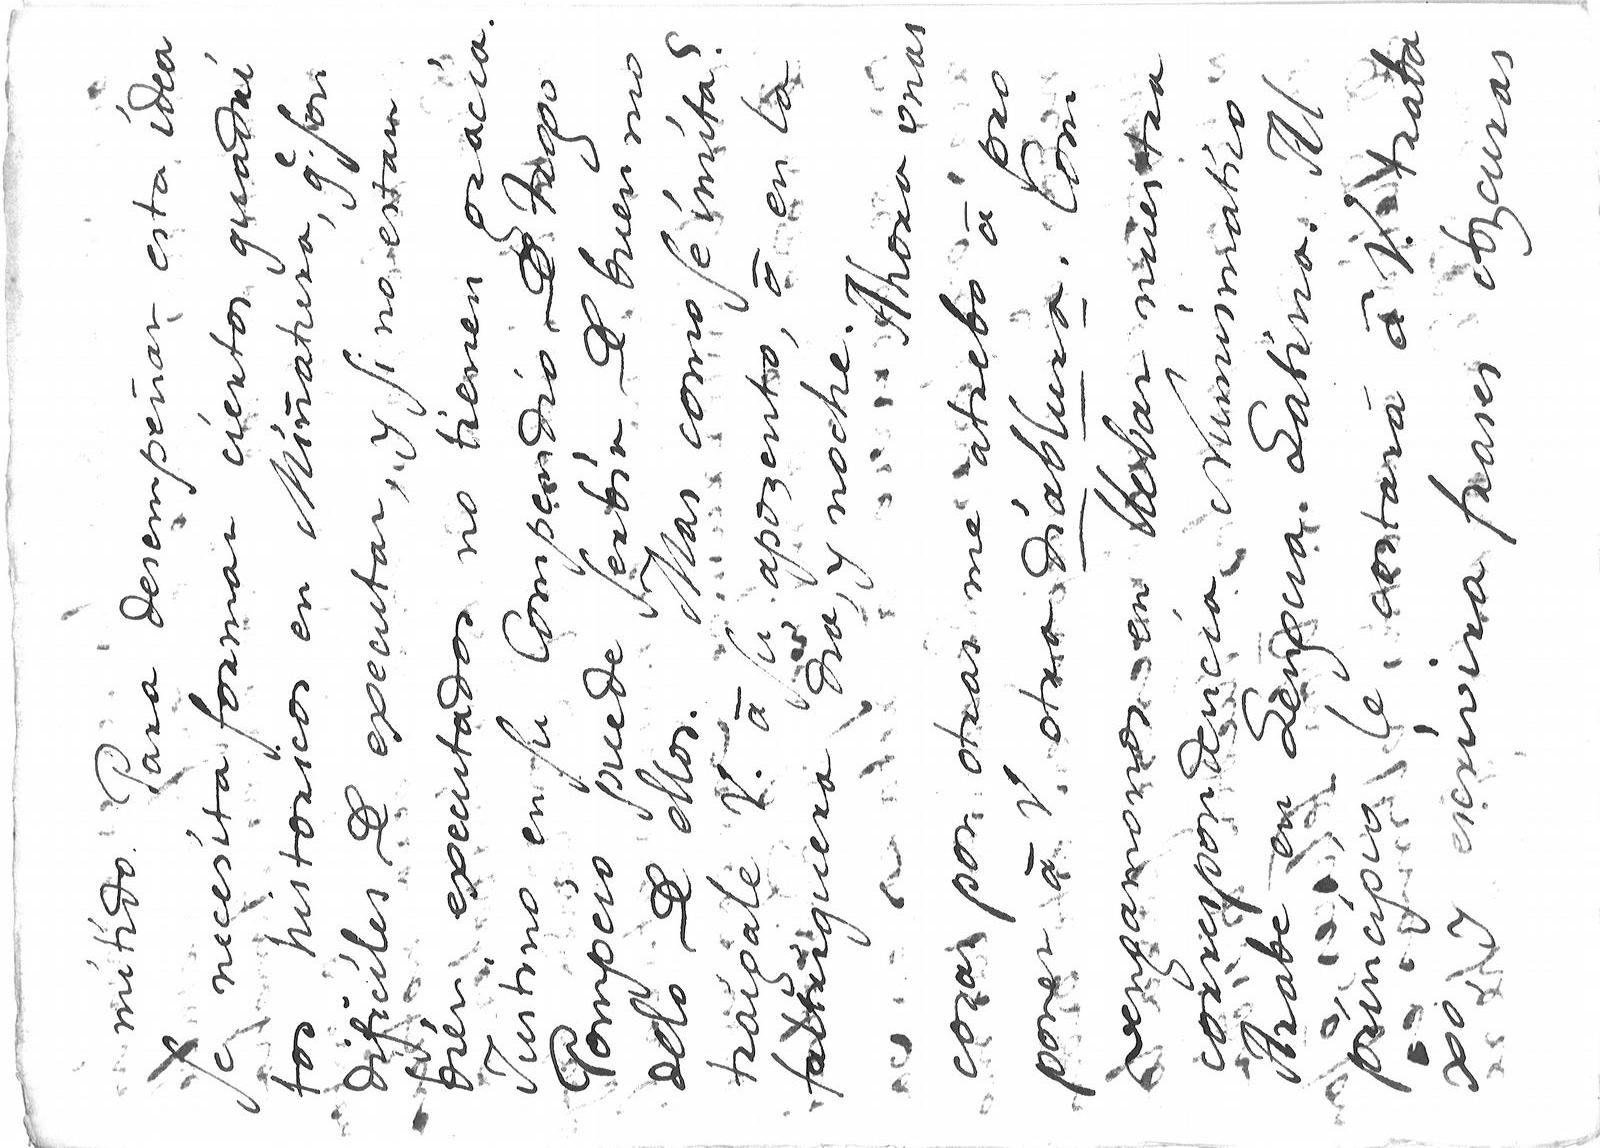 mitido. Para desempeñar esta idea
se necesita formar ciertos quadri
tos historicos en Miñatura, q.e son
dificiles de executar, y si no estan
bien executados no tienen gracia.
Justino en su Compendio de Trogo
Pompeio puede servir de buen mo
delo de ellos. Mas como se imita?
traigale V. à su aposento, ò en la
faltriquera dia, y noche. Ahora unas
cosas por otras me atrebo à pro
poner à V. otra diablura. Com
vengamonos en llebar nuestra
correspondencia Numismatico
Arabe en Lengua Latina. Al
principio le costarà à V. traba
xo y escrivira frases obscuras